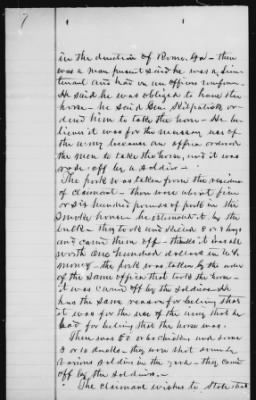 7
in the direction of Rome Ga - there
was a man present said he was a Lieu
tenant and had on an officers uniform.
He said he was obliged to have the
horse - he said Gen Kilpatrick or-
dered him to take the horse - He be
lieves it was for the necessary use of
the army because an officer ordered
the men to take the horse, and it was
rode off by a soldier -
The pork was taken from the
of claimant - there were about five
or six hundred pounds of pork in the
smoke house - he estimates it by the
bulk - they took and 8 or 9 hogs
and carried them off - thinks it was all
worth One hundred dollars in U.S.
money - the pork was taken by the order
of the same officer that took the horse -
it was carried off by the soldiers - He
has the same reason for believing that
it was for the use of the army that he
had for believing that the horse was.
There was 50 or 60 chickens and some
8 or 10 ducks - they were shot
various soldiers in the yard - they carried
off by the soldiers -
The claimant wishes to state that